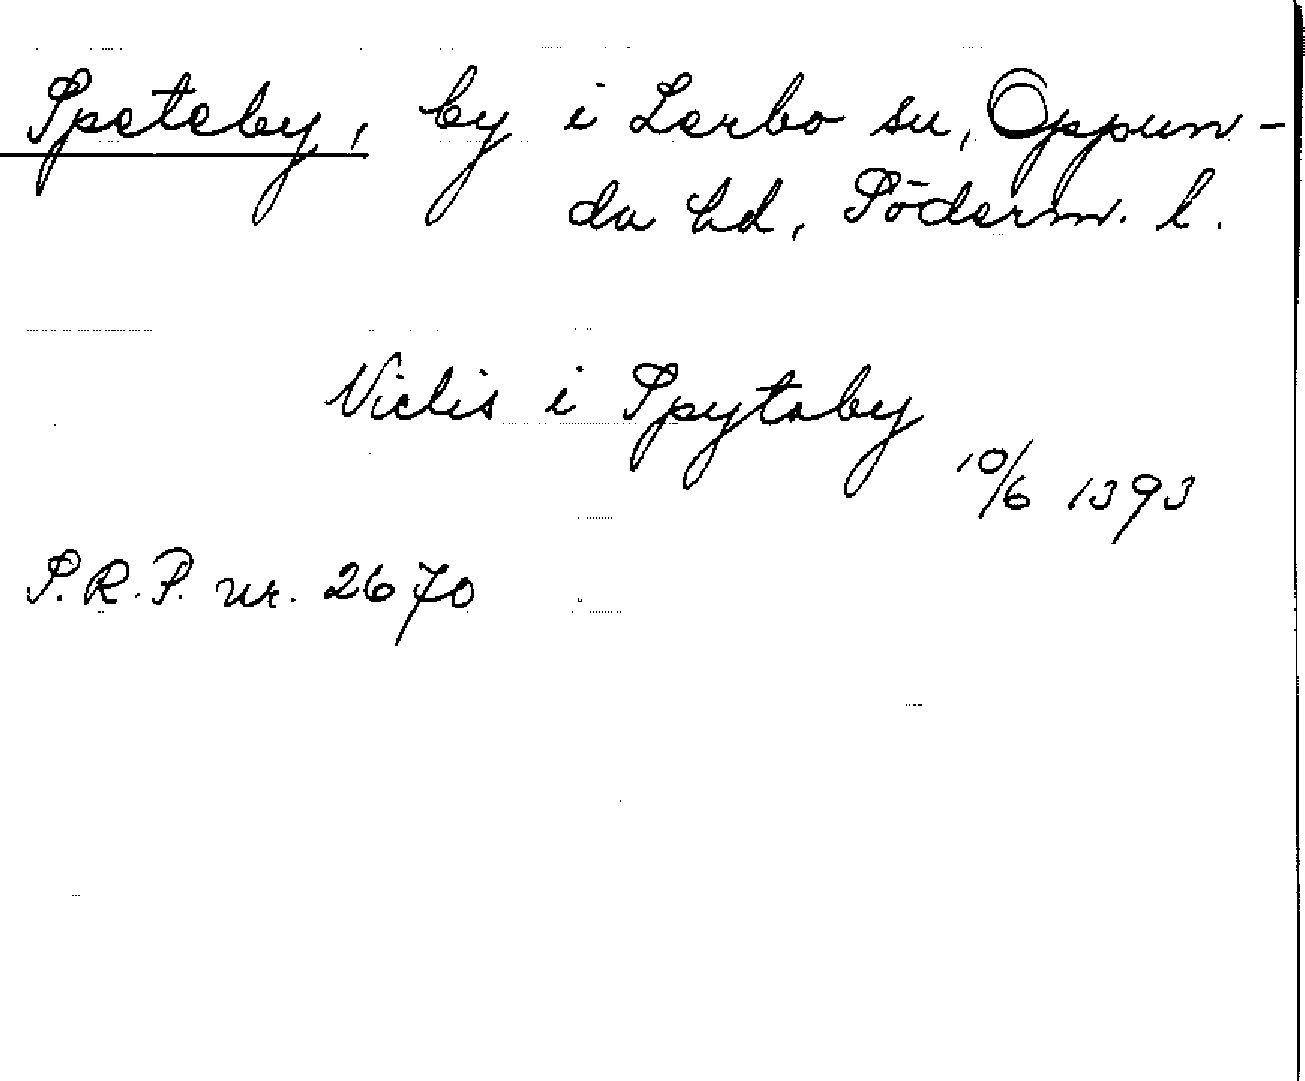 Speteby, by i Lerbo sn, Oppun-
da hd, Söderm. l.
Niclis i Spytaby
10/6 1393
S.R.P. nr. 2670